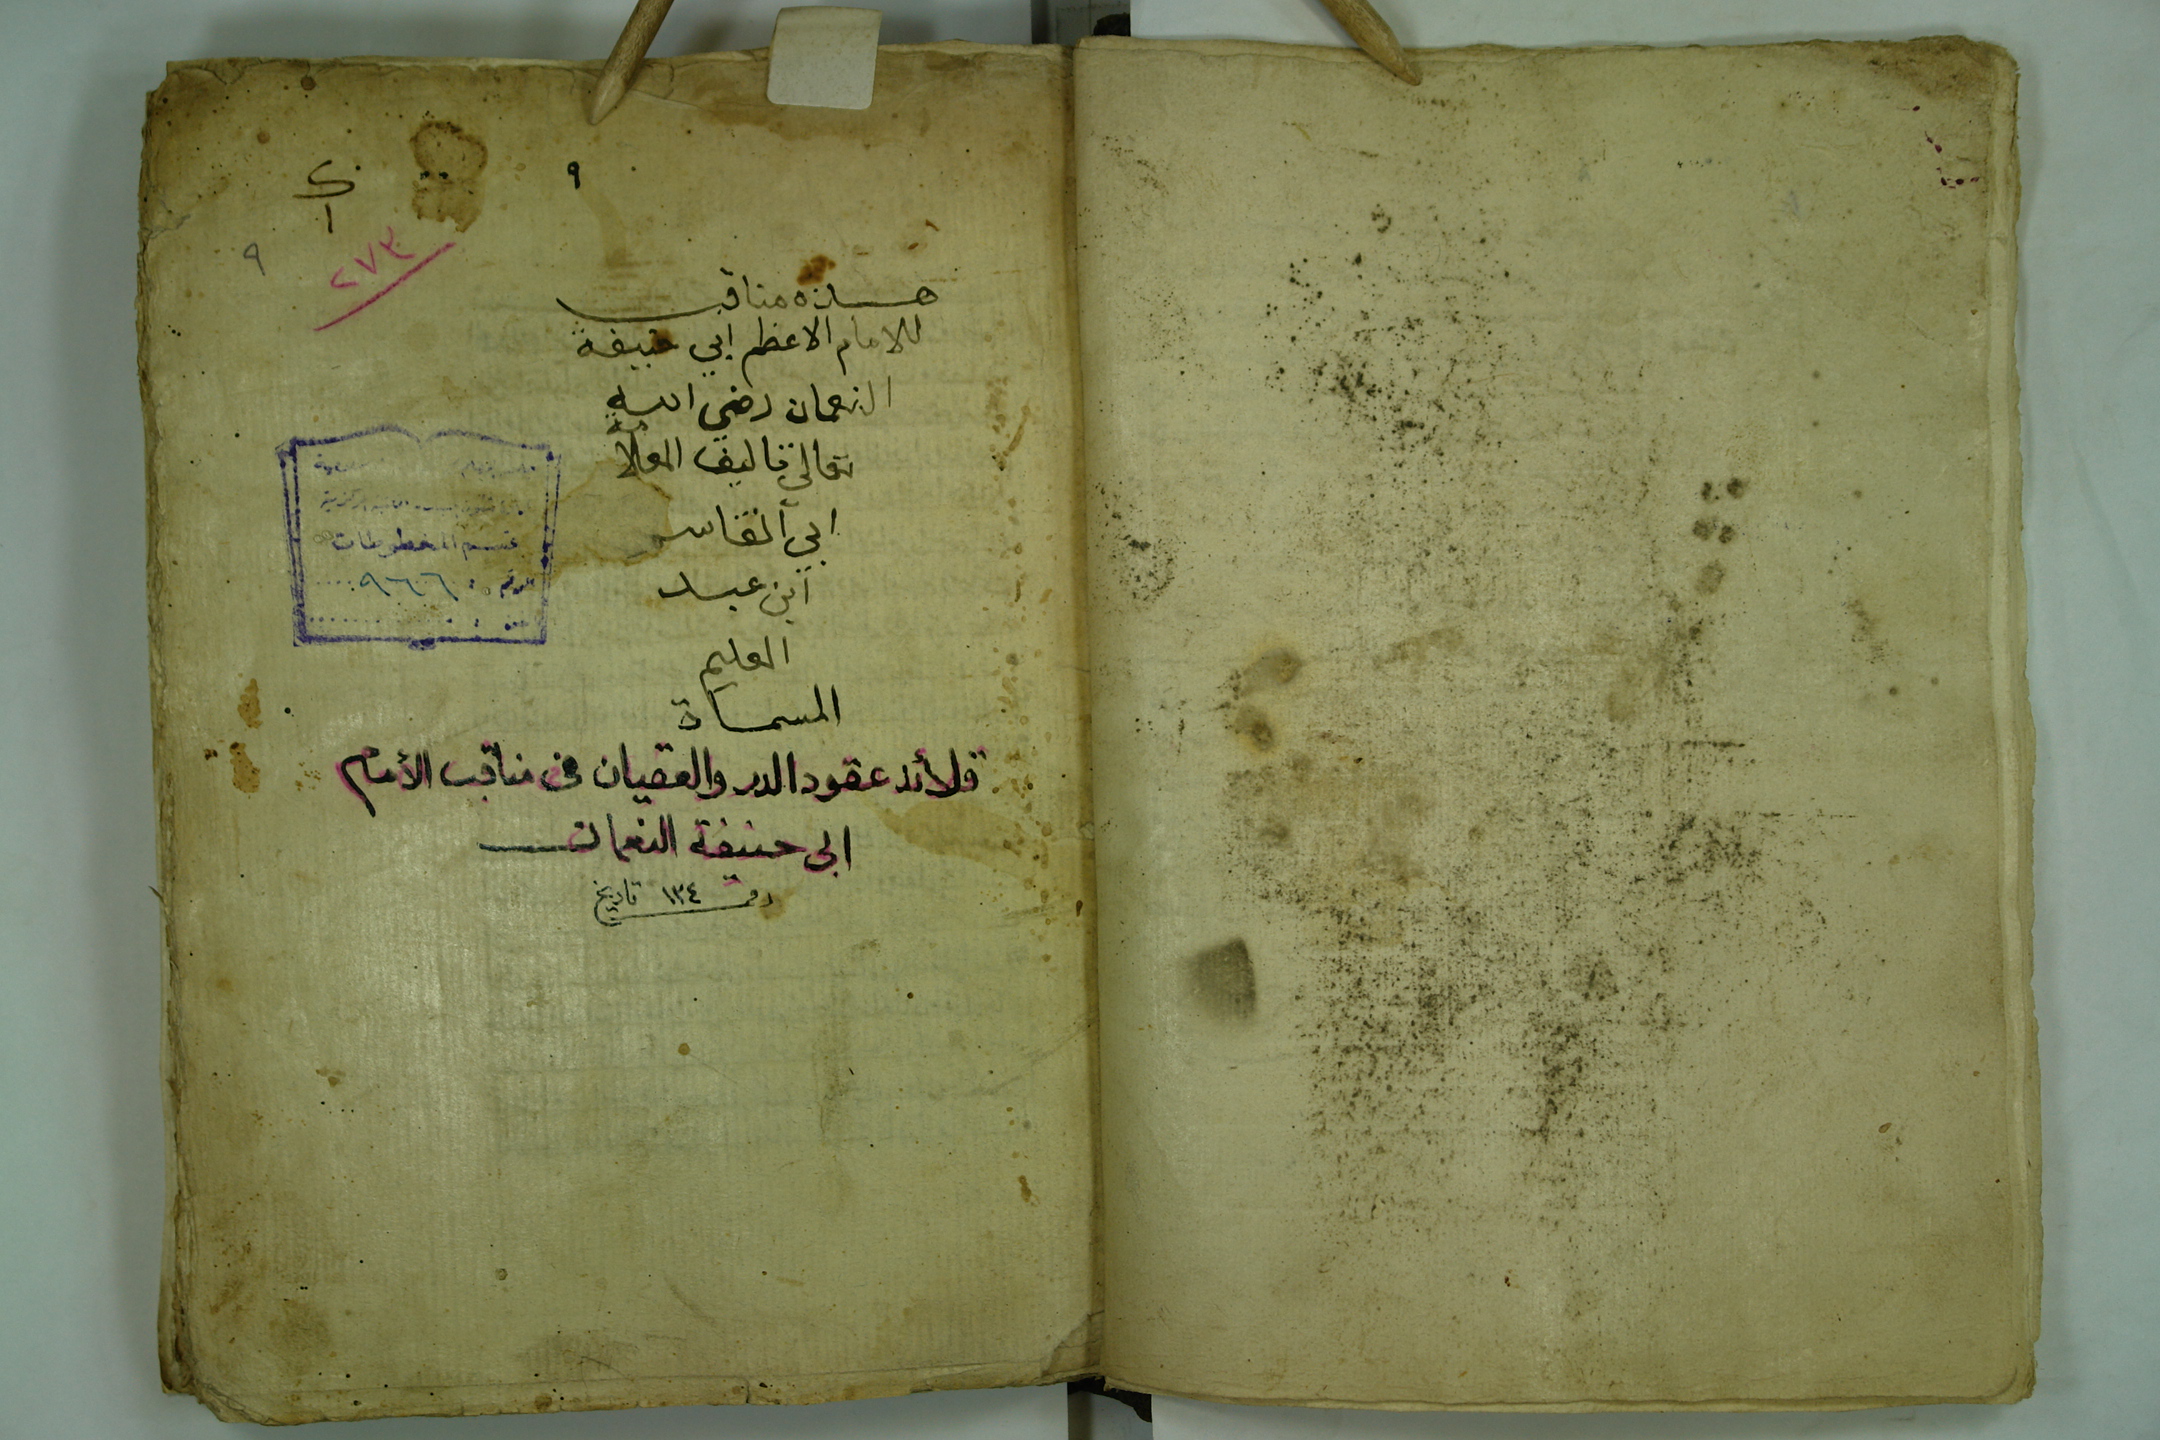 ٩
٩
٢٧٣
هذه مناقب
للامام الاعظم ابي حنيفة
النعمان رضي الله
تعالى تاليف
ابي القاسم
ابن عبد
العليم
المسماة
قلائد عقود الدر والعقيان في مناقب الأمام
ابي حنيفة النعمان
رقم ١٣٤ تاريخ
قسم المخطوطات
الرقم : ٩٦٦